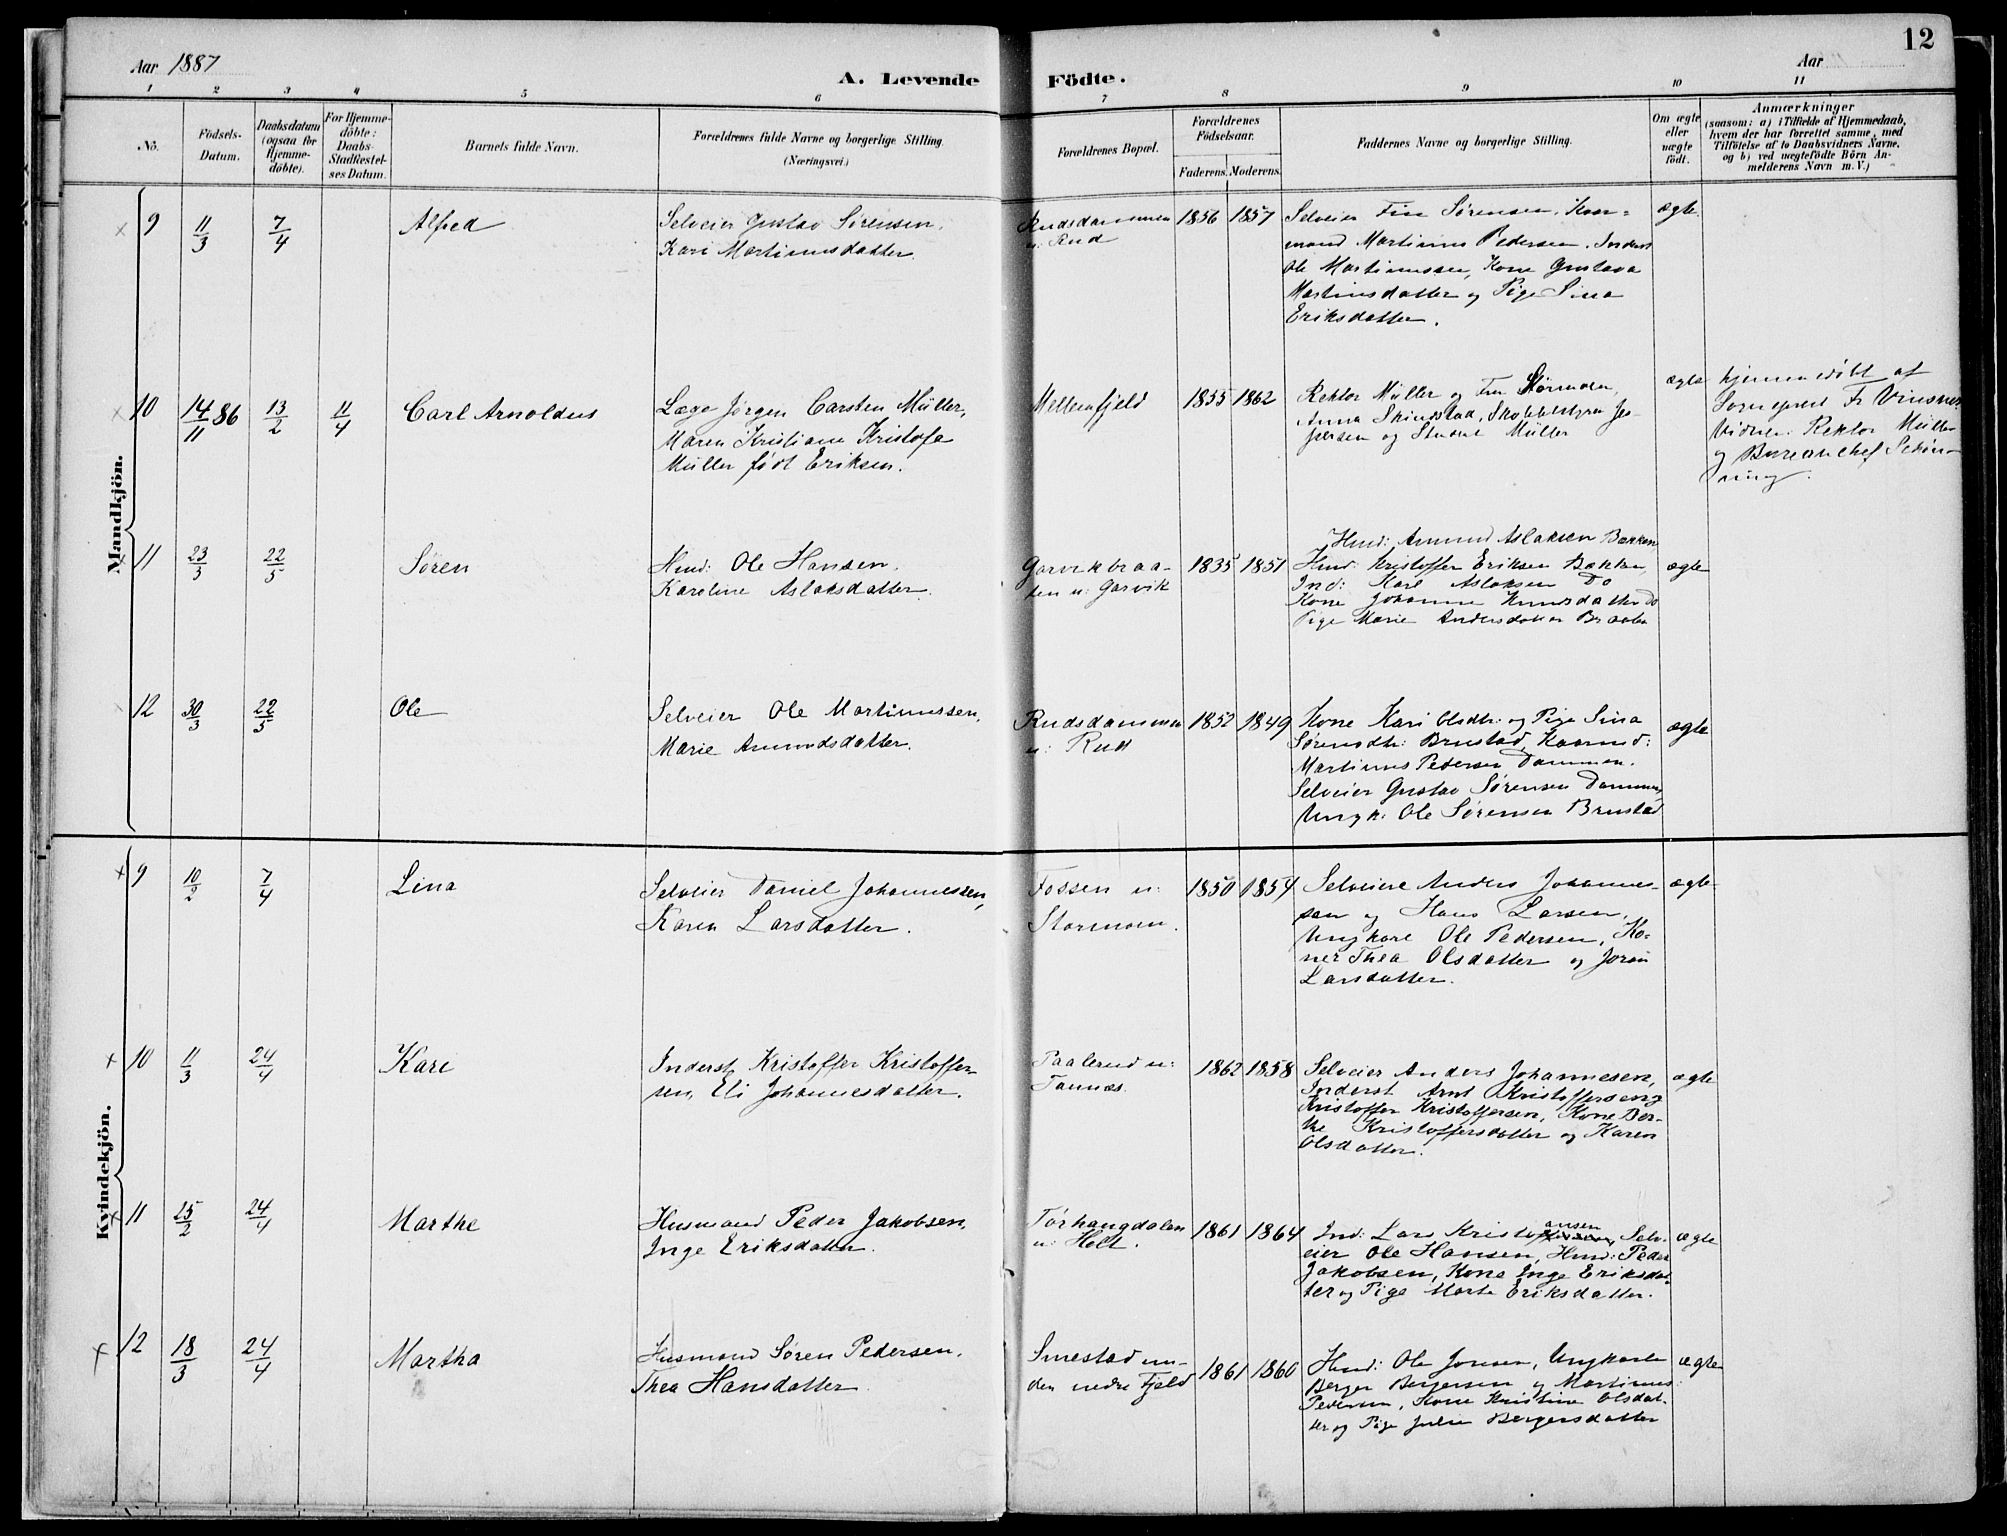 12
Aar 1887
A. Levende Födte.
Aar
1 2 3 4 5 6 7 8 9 10 11
No.
Födsels-Datum.
Daabsdatum (ogsaa for Hjemme-döbte).
For Hjemme-döbte: Daabs-Stadfæstel-ses Datum.
Barnets fulde Navn.
Forældrenes fulde Navne og borgerlige Stilling. (Næringsvei.)
Forældrenes Bopæl.
Forældrenes Födselsaar.
Faderens. Moderens.
Faddernes Navne og borgerlige Stilling.
Om ægte eller uægte födt.
Anmærkninger
(saasom: a) i Tilfælde af Hjemmedaab, hvem der har forrettet samme, med Tilföielse af to Daabsvidners Navne, og b) ved uægtefödte Börn An-melderens Navn m. V.)
Mandkjön.
9 11/3 7/4 Alfred
Selveier Gustav Sørensen,
Kari Martinusdatter
Rudsdammen
u: Rud
1856 1857
Selveier Fin Sørensen, Kaar-
mand Martinus Pedersen. Inderst
Ole Martinussen, Kone Gustava
Martinsdatter og Pige Sina
Eriksdatter.
ægte.
10 14/11 86 13/2 11/4 Carl Arnoldus
Læge Jørgen Carsten Müller,
Maren Kristiane Kristofa
Müller født Eriksen.
Mellemfjeld
1855 1862
Rektor Müller og Fru
Anna Skindstad, Skolebestyrer Jes-
persen og Student Müller
ægte
hjemmedöbt af
Sogneprest Fr Vinsnes.
Vidner: Rektor Müller
og Bureauchef Schøn-
ning.
11 23/3 22/5 Søren
Hmd: Ole Hansen.
Karoline Aslaksdatter.
Garvikbraa-
ten u: Garvik
1835 1851
Hmd: Amund Aslaksen Bakken
Hmd: Kristoffer Eriksen Bakken,
Ind: Karl Aslaksen Do
Kone Johanne Knudsdatter Do
Pige Marie Andersdatter Braaten
ægte
12 30/3 22/5 Ole
Selveier Ole Martinussen,
Marie Amundsdatter.
Rudsdammen
u: Rud
1852 1849
Kone Kari Olsdtr: og Pige Sina
Sørensdtr: Brustad, Kaarmd:
Martinus Pedersen Dammen.
Selveier Gustav Sørensen Dammen,
Ungk: Ole Sørensen Brustad
ægte
Kvindekjön.
9 10/2 7/4 Lina
Selveier Daniel Johannessen,
Karen Larsdatter.
Fossen u:
Stormoen.
1850 1854
Selveiere Anders Johannes-
sen og Hans Larsen,
Ungkarl Ole Pedersen, Ko-
ner Thea Olsdatter og Joran
Larsdatter.
ægte
10 11/3 24/4 Kari
Inderst Kristoffer Kristoffer-
sen, Eli Johannesdatter.
Paalerud u:
Tannæs.
1862 1858
Selveier Anders Johannesen,
Inderst Arnt Kristoffersen og
Kristoffer Kristoffersen, Kone Ber-
the Kristoffersdatter og Karen
Olsdatter.
ægte
11 25/2 24/4 Marthe
Husmand Peder Jakobsen,
Inge Eriksdatter.
Tørhaugdalen
u: Holt.
1861 1864
ansen
Ind: Lars Kristo Selv-
eier Ole Hansen, Hmd: Peder
Jakobsen, Kone Inge Eriksdat-
ter og Pige Marte Eriksdatter.
ægte
12 18/3 24/4 Martha
Husmand Søren Pedersen.
Thea Hansdatter
Smestad un-
der nedre Fjeld
1861 1860
Hmd: Ole Jonsen, Ungkarle
Berger Bergersen og Martinus
Pedersen, Kone Kristine Olsdat-
ter og Pige Julie Bergersdatter
ægte